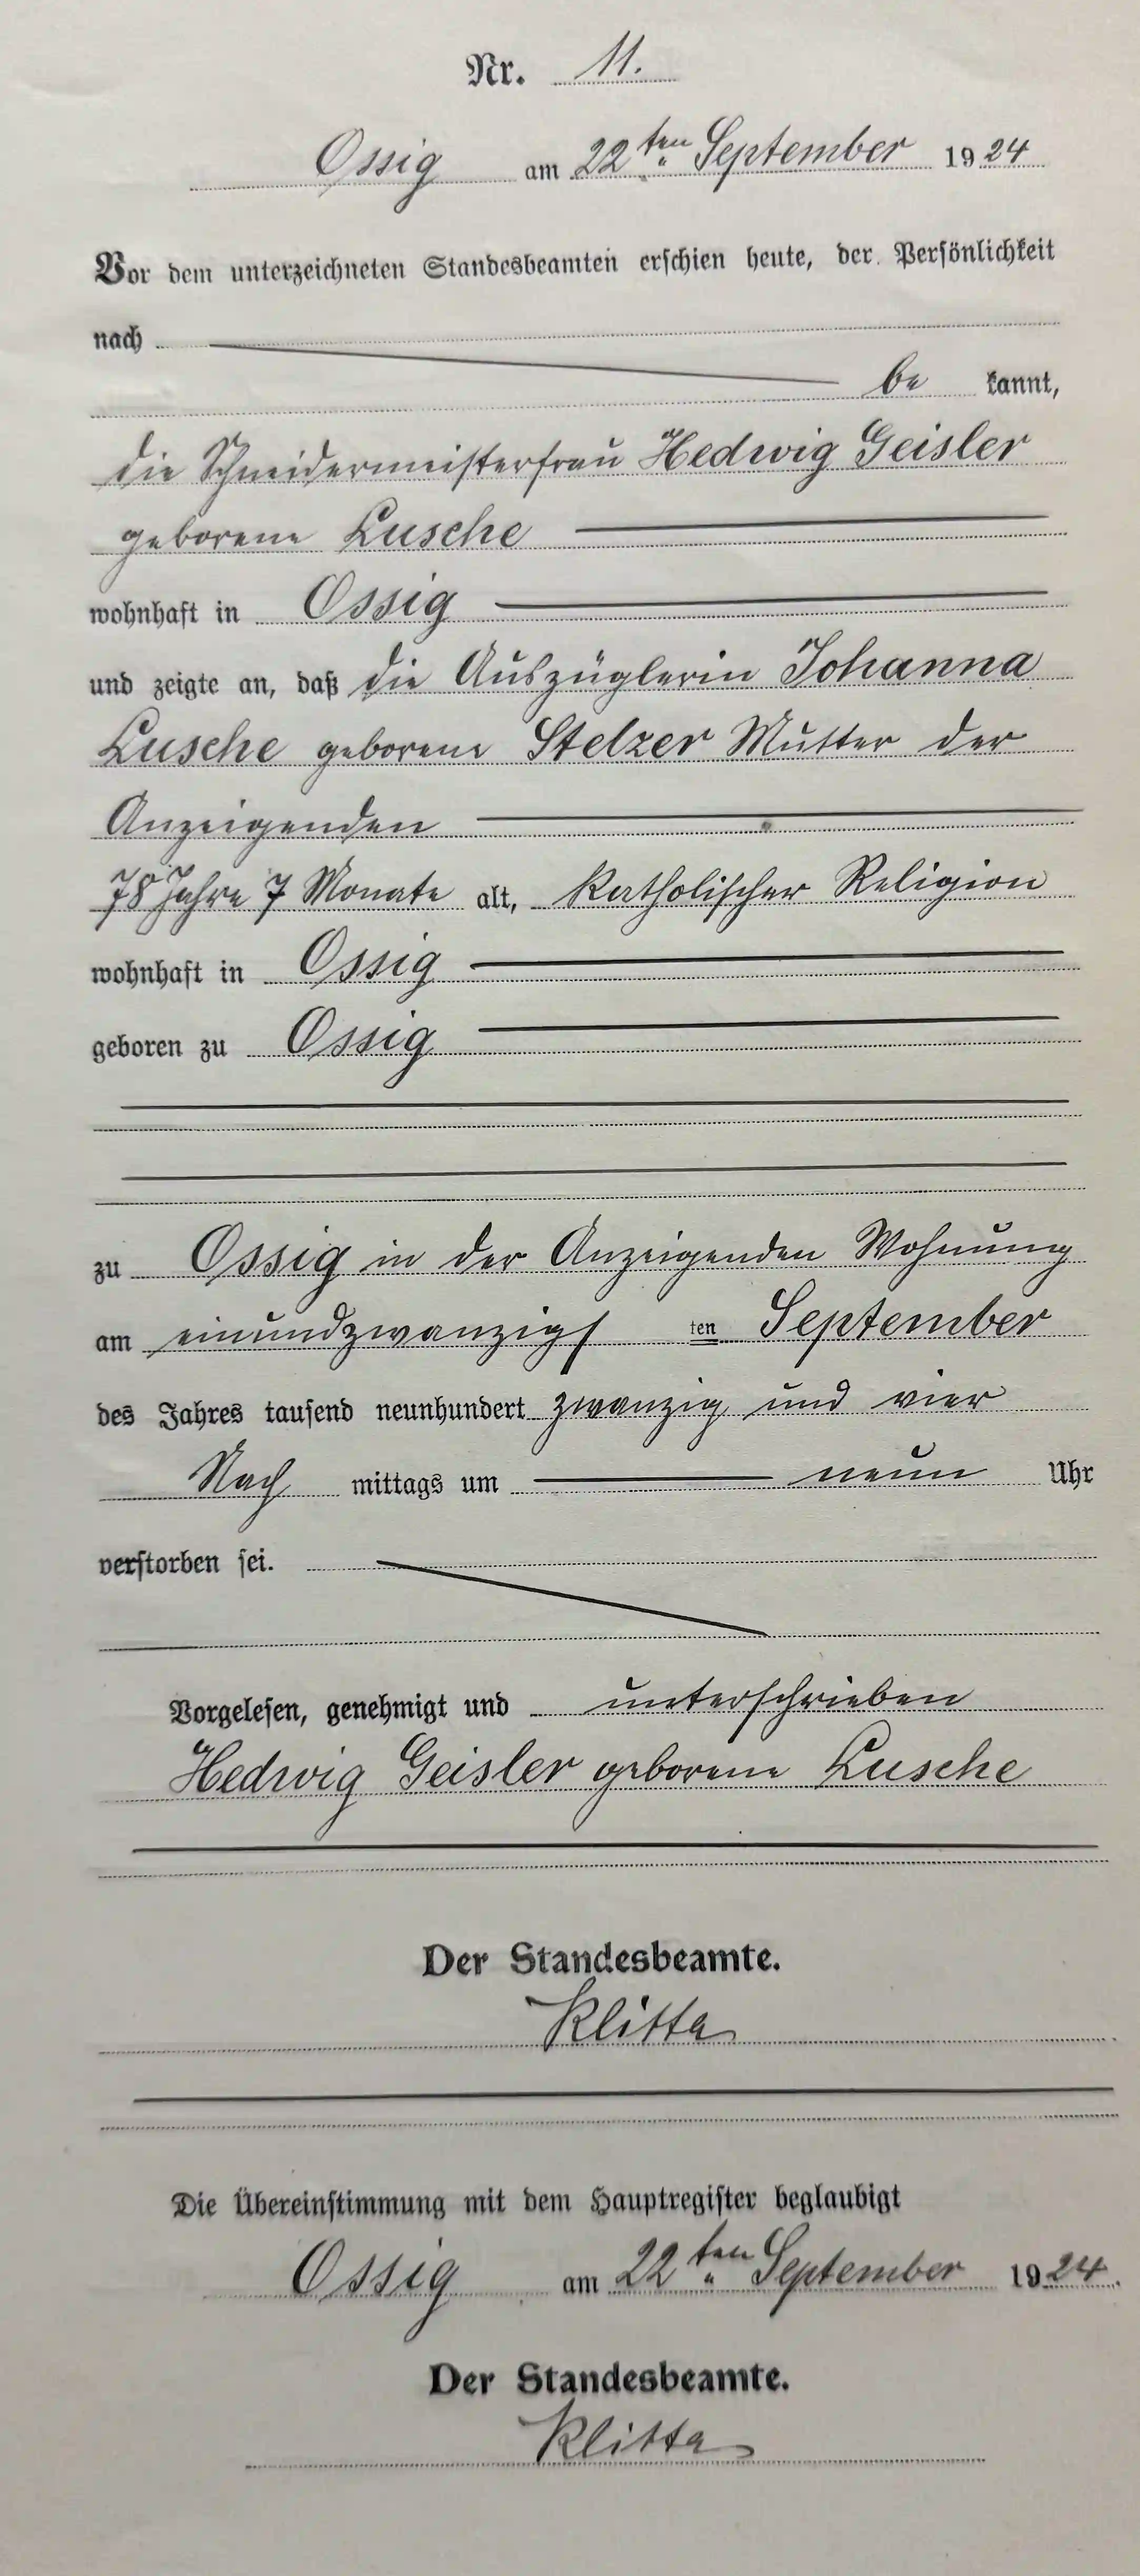 Nr. 11.
Ossig am 22ten September 1924
Vor dem unterzeichneten Standesbeamten erschien heute, der Persönlichkeit
nach
be kannt,
die Schneidermeisterfrau Hedwig Geisler
geborene Lusche
wohnhaft in Ossig
und zeigte an, daß die Auszüglerin Johanna
Lusche geborene Stelzer Mutter der
Anzeigenden
78 Jahre 7 Monate alt, katholischer Religion
wohnhaft in Ossig
geboren zu Ossig
zu Ossig in der Anzeigenden Wohnung
am einundzwanzigs ten September
des Jahres tausend neunhundert zwanzig und vier
Nach mittags um neun Uhr
verstorben sei.
Vorgelesen, genehmigt und unterschrieben
Hedwig Geisler geborene Lusche
Der Standesbeamte.
Klitta
Die Übereinstimmung mit dem Hauptregister beglaubigt
Ossig am 22ten September 1924.
Der Standesbeamte.
Klitta